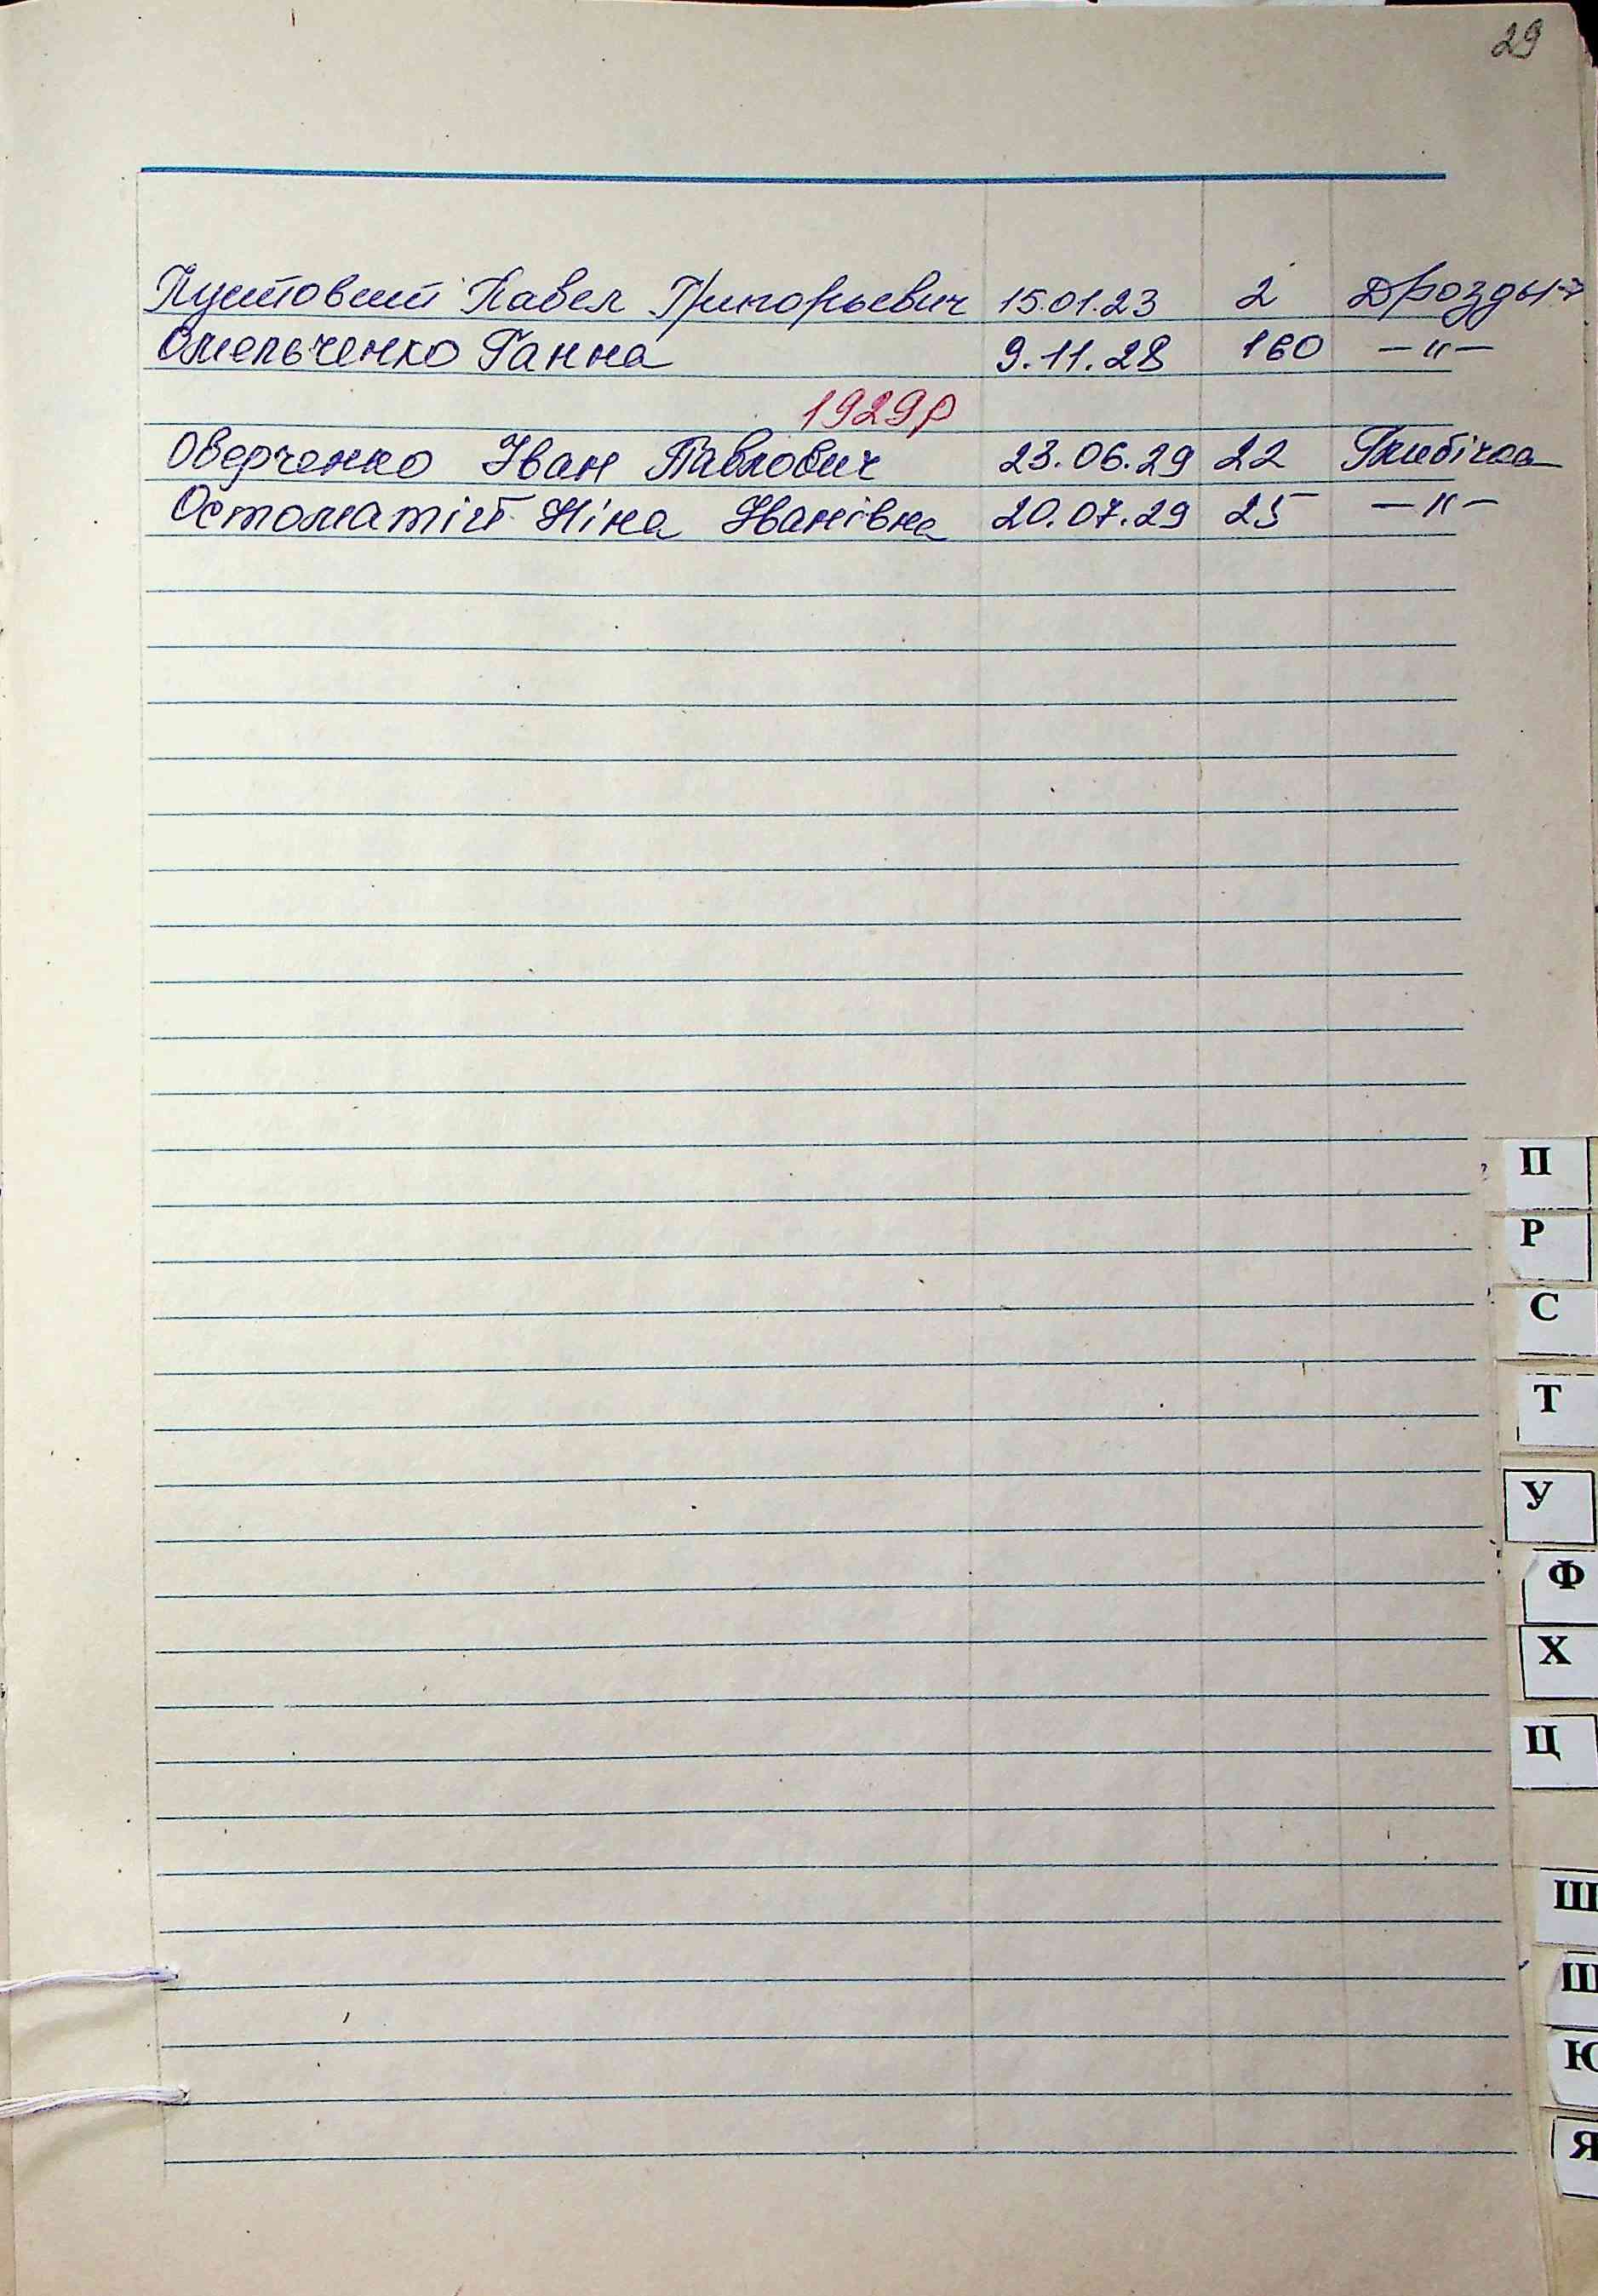 29
Пустовий Павел Григорьевич 15.01.23 2 Дрозды
Омельченко Ганна 9.11.28 160 —"—
1929р
Оверченко Іван Павлович 23.06.29 22 Глибічка
Остоматій Ніна Іванівна 20.07.29 25 —"—
П
Р
С
Т
У
Ф
Х
Ц
Ш
Ю
Я